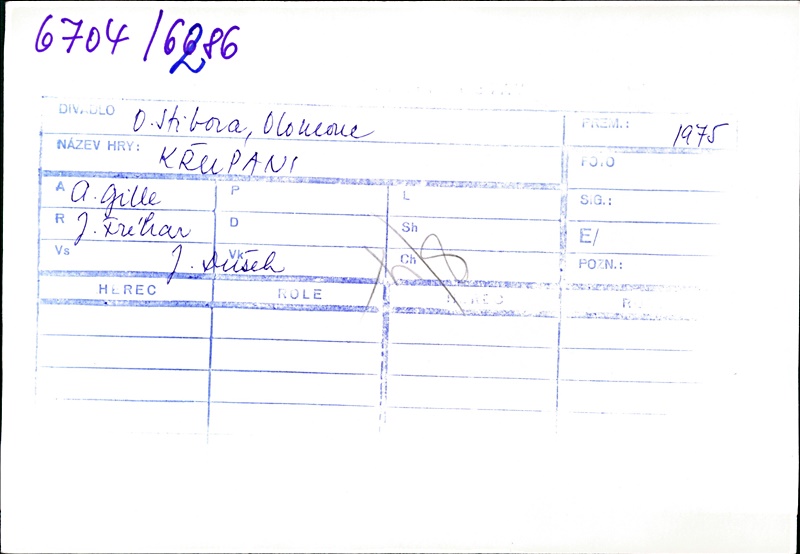 6704/6286
DIVADLO O. Stibora, Olomouc PREM.: 1975
NÁZEV HRY: KŘUPANI FOTO
A A. Gille P L SIG.:
R J. Fréhar D Sh E/
Vs J. Dušek Vk Ch POZN.:
HEREC ROLE